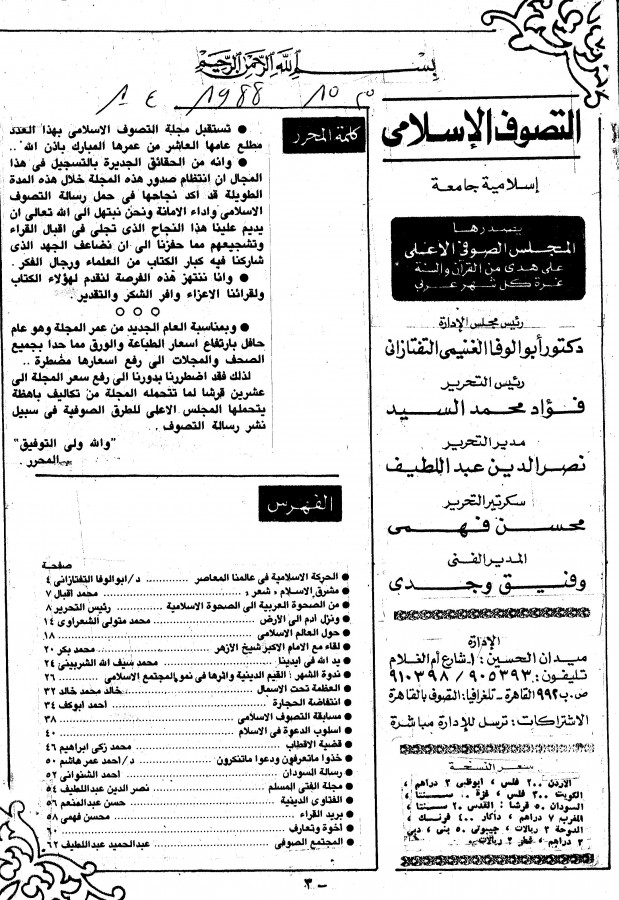 بسم الله الرحمن الرحيم
1988
التصوف الإسلامى
إسلامية جامعة
يصدرها
المجلس الصوفى الأعلى
على هدى من القرآن والسنة
غرة كل شهر عربى
رئيس مجلس الإدارة
دكتور أبو الوفا الغنيمى التفتازانى
رئيس التحرير
فؤاد محمد السيد
مدير التحرير
نصر الدين عبد اللطيف
سكرتير التحرير
محسن فهمى
المدير الفنى
وفيق وجدى
الإدارة
ميدان الحسين: ١ شارع أم الغلام
تليفون: ٩٠٥٣٩٣ / ٩١٠٣٩٨
ص.ب ٩٩٢ القاهرة - تلغرافيا: التصوف بالقاهرة
الاشتراكات: ترسل للإدارة مباشرة
سعر النسخة
الاردن ٢٠٠ فلس ، ابوظبى ٣ دراهم ،
الكويت ٢٠٠ فلس ، غزة .. سنتا ،
السودان ٥٠ قرشا : القدس ٢٠ سنتا ،
المغرب ٧ دراهم ، داكار ٤٠٠ فرنك ،
الدوحة ٣ ريالات ، جيبوتى ٥٠ بنى ، دبى
٣ دراهم ، قطر ٣ ريالات
كلمة المحرر
● تستقبل مجلة التصوف الاسلامى بهذا العدد
مطلع عامها العاشر من عمرها المبارك باذن الله ..
● وانه من الحقائق الجديرة بالتسجيل فى هذا
المجال ان انتظام صدور هذه المجلة خلال هذه المدة
الطويلة قد اكد نجاحها فى حمل رسالة التصوف
الاسلامى واداء الامانة ونحن نبتهل الى الله تعالى ان
يديم علينا هذا النجاح الذى تجلى فى اقبال القراء
وتشجيعهم مما حفزنا الى ان نضاعف الجهد الذى
شاركنا فيه كبار الكتاب من العلماء ورجال الفكر .
● وانا ننتهز هذه الفرصة لنقدم لهؤلاء الكتاب
ولقرائنا الاعزاء وافر الشكر والتقدير .
● وبمناسبة العام الجديد من عمر المجلة وهو عام
حافل بارتفاع اسعار الطباعة والورق مما حدا بجميع
الصحف والمجلات الى رفع اسعارها مضطرة ..
لذلك فقد اضطررنا بدورنا الى رفع سعر المجلة الى
عشرين قرشا لما تتحمله المجلة من تكاليف باهظة
يتحملها المجلس الاعلى للطرق الصوفية فى سبيل
نشر رسالة التصوف .
"والله ولى التوفيق"
المحرر
الفهرس
صفحة
● الحركة الاسلامية فى عالمنا المعاصر ........ د/ ابوالوفا التفتازانى ٤
● مشرق الاسلام « شعر » ........ محمد اقبال ٧
● من الصحوة العربية الى الصحوة الاسلامية ........ رئيس التحرير ٨
● ونزل آدم الى الأرض ........ محمد متولى الشعراوى ١٤
● حول العالم الاسلامى ........ ١٨
● لقاء مع الامام الاكبر شيخ الأزهر ........ محمد بكر ٢٠
● يد الله فى ايدينا ........ محمد سيف الله الشربينى ٢٤
● ندوة الشهر : القيم الدينية واثرها فى نمو المجتمع الاسلامى ..... ٢٦
● العظمة تحت الاسمال ........ خالد محمد خالد ٣٢
● انتفاضة الحجارة ........ احمد ابوكف ٣٤
● مسابقة التصوف الاسلامى ........ ٣٨
● اسلوب الدعوة فى الاسلام ........ ٤٠
● قضية الاقطاب ........ محمد زكى ابراهيم ٤٦
● خذوا ماتعرفون ودعوا ماتنكرون ........ د/ احمد عمر هاشم ٥٠
● رسالة السودان ........ احمد الشنوانى ٥٢
● مجلة الفتى المسلم ........ نصر الدين عبداللطيف ٥٤
● الفتاوى الدينية ........ حسن عبدالمنعم ٥٦
● بريد القراء ........ محسن فهمى ٥٨
● أخوة وتعارف ........ ٦٠
● المجتمع الصوفى ........ عبدالحميد عبداللطيف ٦٢
- ٣